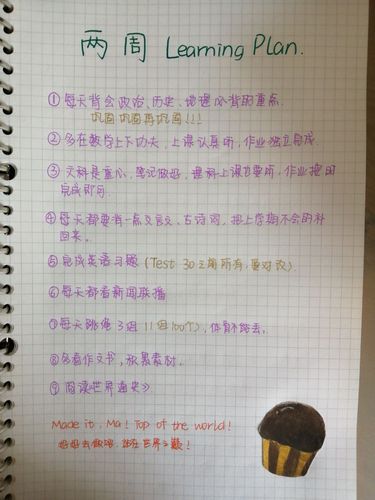 两周 Learning Plan.
①每天背会政治、历史、地理必背的重点.
巩固巩固再巩固!!!
②多在数学上下功夫,上课认真听,作业独立完成.
③文科是重心,笔记做好,理科上课也要听,作业按时
完成即可.
④每天都要有一点文言文、古诗词,把上学期不会的补
回来。
⑤完成英语习题(Test 30之前所有,要对改)
⑥每天都看新闻联播
⑦每天跳绳3组(1组100个),体育不能丢。
⑧多看作文书,积累素材.
⑨阅读世界通史》
Made it, Ma! Top of the world!
好好去做吧,站在世界之巅!